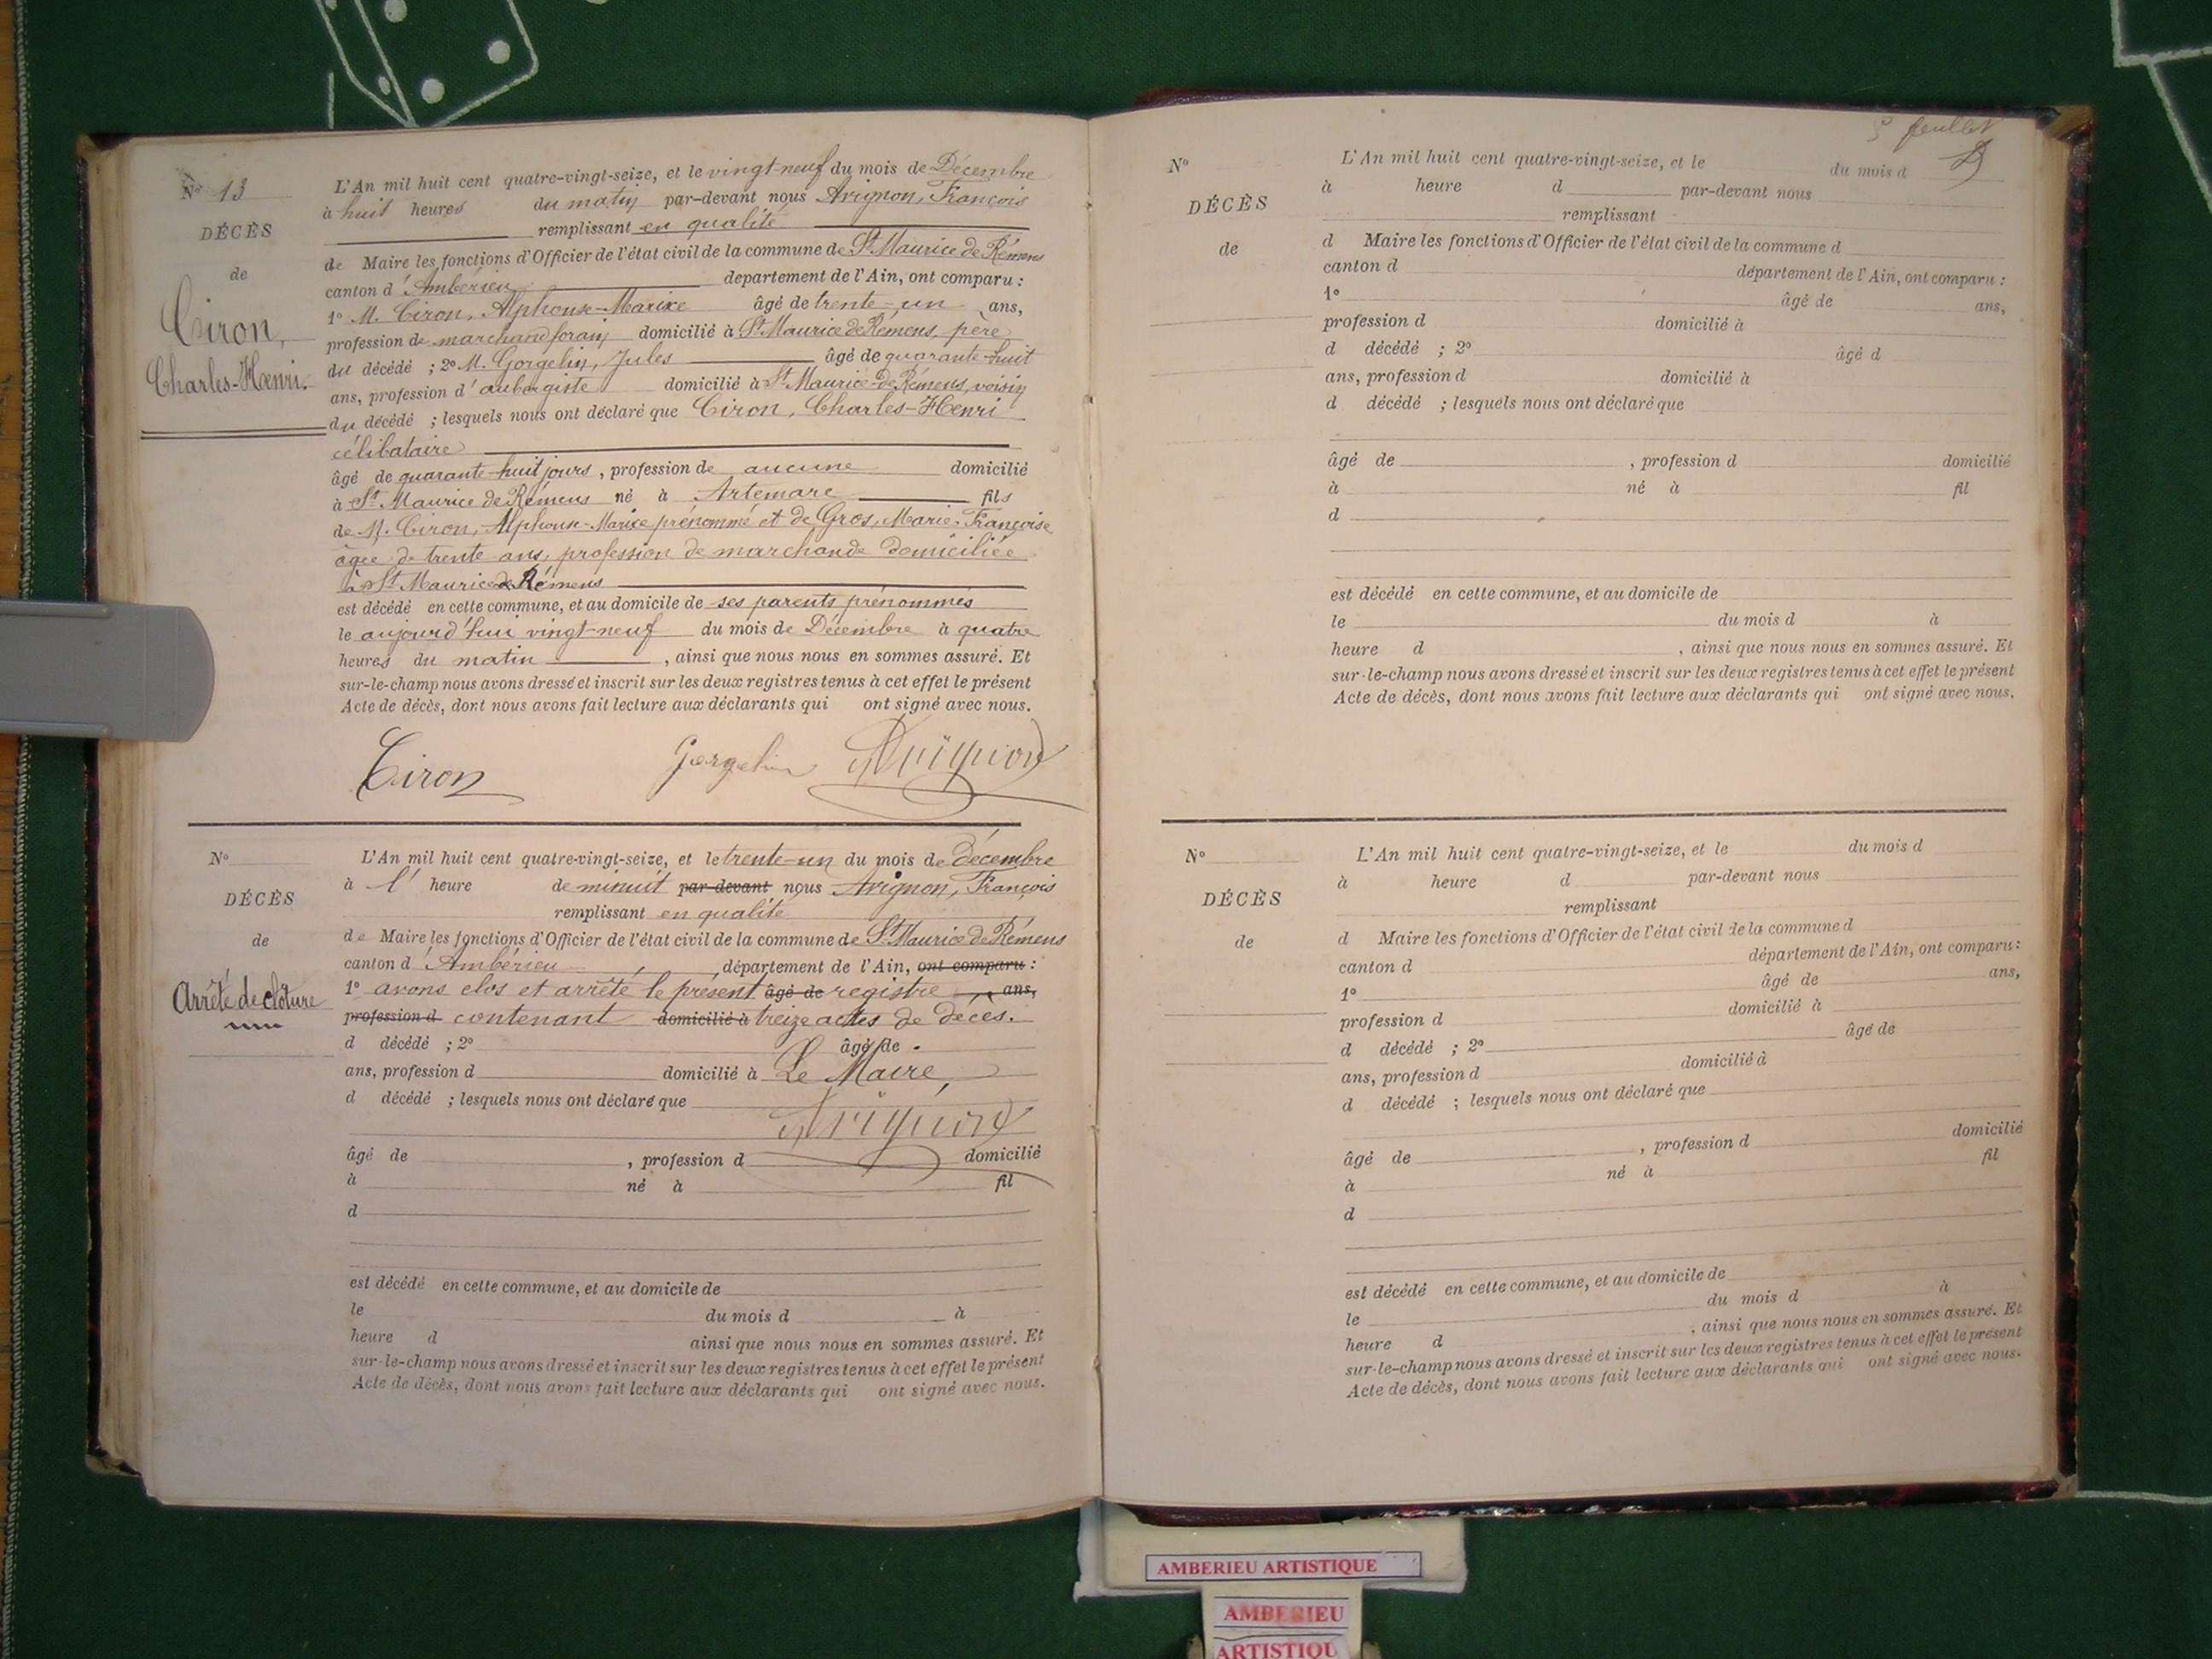 N° 13
DÉCÈS
de
Ciron,
Charles-Henri.
L'An mil huit cent quatre-vingt-seize, et le vingt-neuf du mois de Décembre
à huit heures du matin par-devant nous Avignon, François
remplissant en qualité
de Maire les fonctions d'Officier de l'état civil de la commune de St Maurice de Rémens
canton d'Ambérieu département de l'Ain, ont comparu :
1° M. Ciron, Alphonse-Marie âgé de trente-un ans,
profession de marchand forain domicilié à St Maurice de Rémens, père
du décédé ; 2° M. Gorgelin, Jules âgé de quarante-huit
ans, profession d'aubergiste domicilié à St Maurice-de Rémens, voisin
du décédé ; lesquels nous ont déclaré que Ciron, Charles-Henri
célibataire
âgé de quarante-huit jours, profession de aucune domicilié
à St Maurice de Rémens né à Artemare fils
de M. Ciron, Alphonse-Marie prénommé et de Gros, Marie-Françoise
âgée de trente ans, profession de marchande domiciliée
à St Maurice de Rémens
est décédé en cette commune, et au domicile de ses parents prénommés
le aujourd'hui vingt-neuf du mois de Décembre à quatre
heures du matin , ainsi que nous nous en sommes assuré. Et
sur-le-champ nous avons dressé et inscrit sur les deux registres tenus à cet effet le présent
Acte de décès, dont nous avons fait lecture aux déclarants qui ont signé avec nous.
Ciron Gorgelin Avignon
N°
DÉCÈS
de
Arrêté de clôture
L'An mil huit cent quatre-vingt-seize, et le trente-un du mois de Décembre
à l' heure de minuit par-devant nous Avignon, François
remplissant en qualité
de Maire les fonctions d'Officier de l'état civil de la commune de St Maurice de Rémens
canton d'Ambérieu département de l'Ain, ont comparu :
1° avons clos et arrêté le présent âgé de registre ans,
profession d contenant domicilié à treize actes de décès.
d décédé ; 2° âgé de
ans, profession d domicilié à Le Maire,
d décédé ; lesquels nous ont déclaré que
Avignon
âgé de , profession d domicilié
à né à fil
d
est décédé en cette commune, et au domicile de
le du mois d à
heure d ainsi que nous nous en sommes assuré. Et
sur-le-champ nous avons dressé et inscrit sur les deux registres tenus à cet effet le présent
Acte de décès, dont nous avons fait lecture aux déclarants qui ont signé avec nous.
feuillet
N°
DÉCÈS
de
L'An mil huit cent quatre-vingt-seize, et le du mois d
à heure d par-devant nous
remplissant
d Maire les fonctions d'Officier de l'état civil de la commune d
canton d département de l'Ain, ont comparu :
1° âgé de ans,
profession d domicilié à
d décédé ; 2° âgé d
ans, profession d domicilié à
d décédé ; lesquels nous ont déclaré que
âgé de , profession d domicilié
à né à fil
d
est décédé en cette commune, et au domicile de
le du mois d à
heure d , ainsi que nous nous en sommes assuré. Et
sur-le-champ nous avons dressé et inscrit sur les deux registres tenus à cet effet le présent
Acte de décès, dont nous avons fait lecture aux déclarants qui ont signé avec nous.
N°
DÉCÈS
de
L'An mil huit cent quatre-vingt-seize, et le du mois d
à heure d par-devant nous
remplissant
d Maire les fonctions d'Officier de l'état civil de la commune d
canton d département de l'Ain, ont comparu :
1° âgé de ans,
profession d domicilié à
d décédé ; 2° âgé de
ans, profession d domicilié à
d décédé ; lesquels nous ont déclaré que
âgé de , profession d domicilié
à né à fil
d
est décédé en cette commune, et au domicile de
le du mois d à
heure d , ainsi que nous nous en sommes assuré. Et
sur-le-champ nous avons dressé et inscrit sur les deux registres tenus à cet effet le présent
Acte de décès, dont nous avons fait lecture aux déclarants qui ont signé avec nous.
AMBERIEU ARTISTIQUE
AMBERIEU
ARTISTIQU